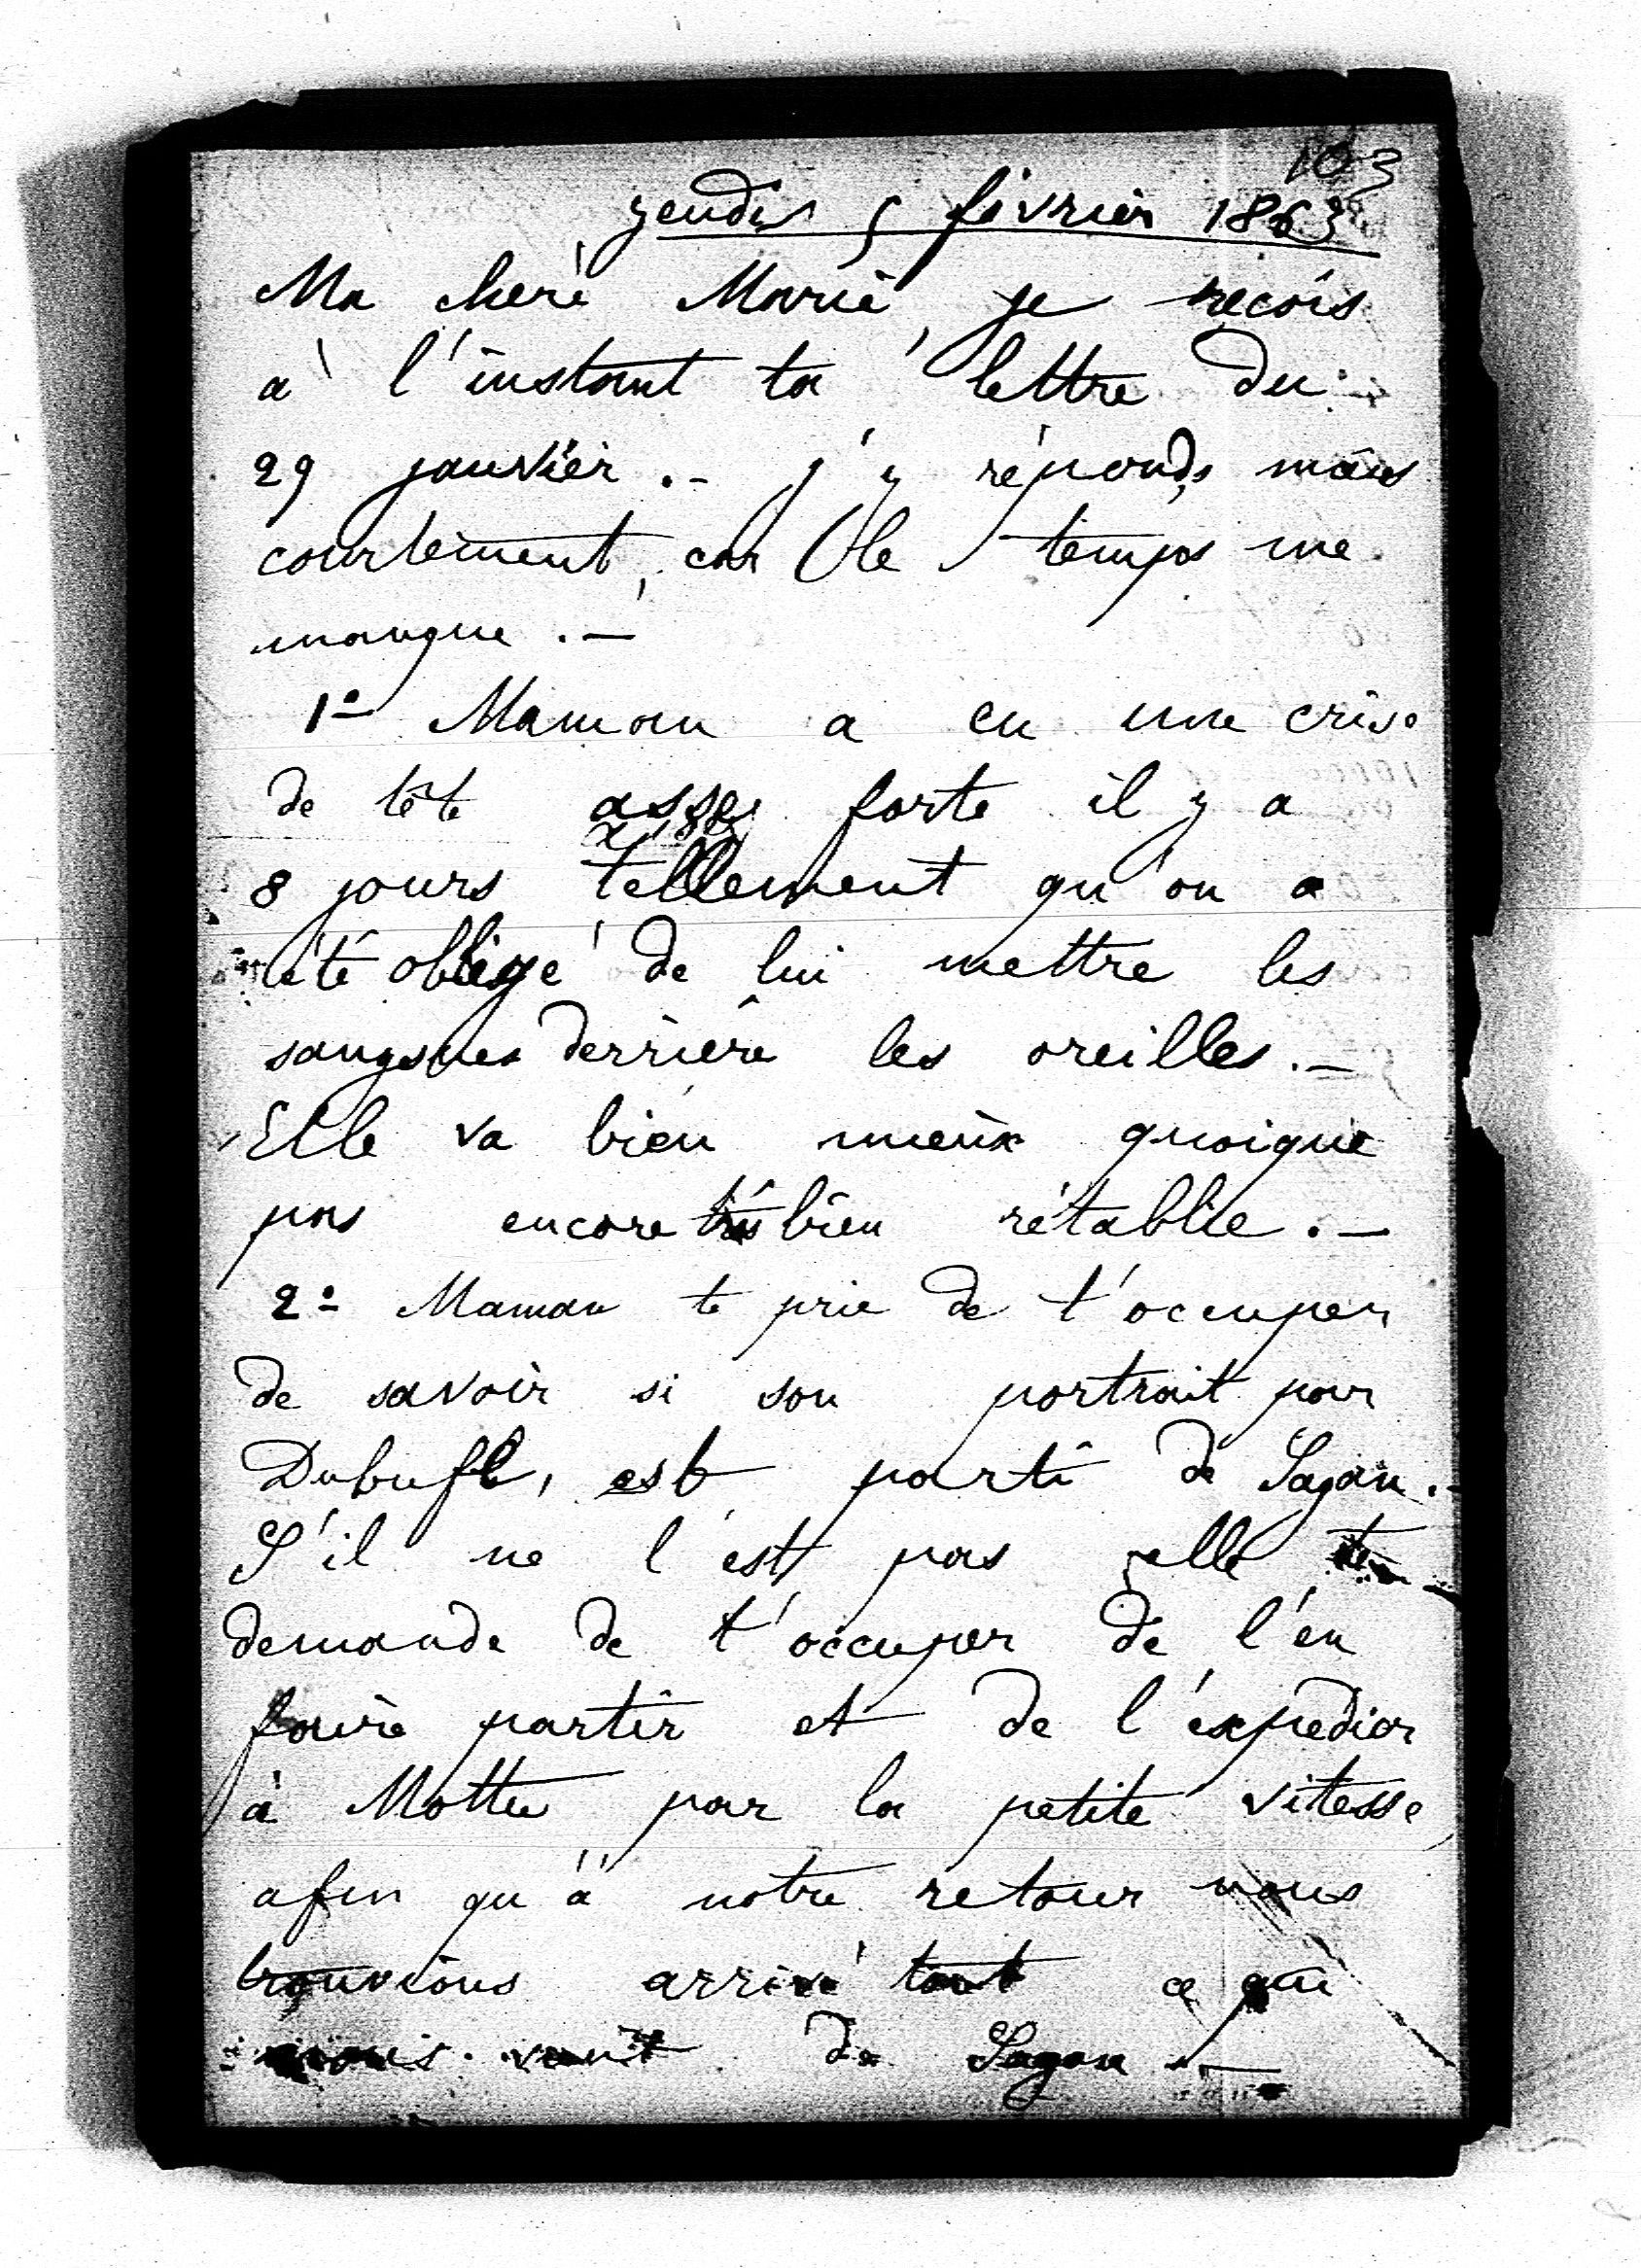 103
jeudi 5 février 1863
Ma chère Marie, je reçois
à l'instant ta lettre du
29 janvier. - j'y réponds mais
courtement, car le temps me
manque. -
1º Maman a eu une crise
de tête assez forte il y a
8 jours tellement qu'on a
été obligé de lui mettre les
sangsues derrière les oreilles. -
Elle va bien mieux quoique
pas encore très bien rétablie. -
2º Maman te prie de t'occuper
de savoir si son portrait par
Dubufe, est parti de Sagan. -
S'il ne l'est pas elle te
demande de t'occuper de l'en
faire partir et de l'expédier
à Mottu par la petite vitesse
afin qu'à notre retour nous
trouvions arrivé tout ce qui
nous vient de Sagan. -